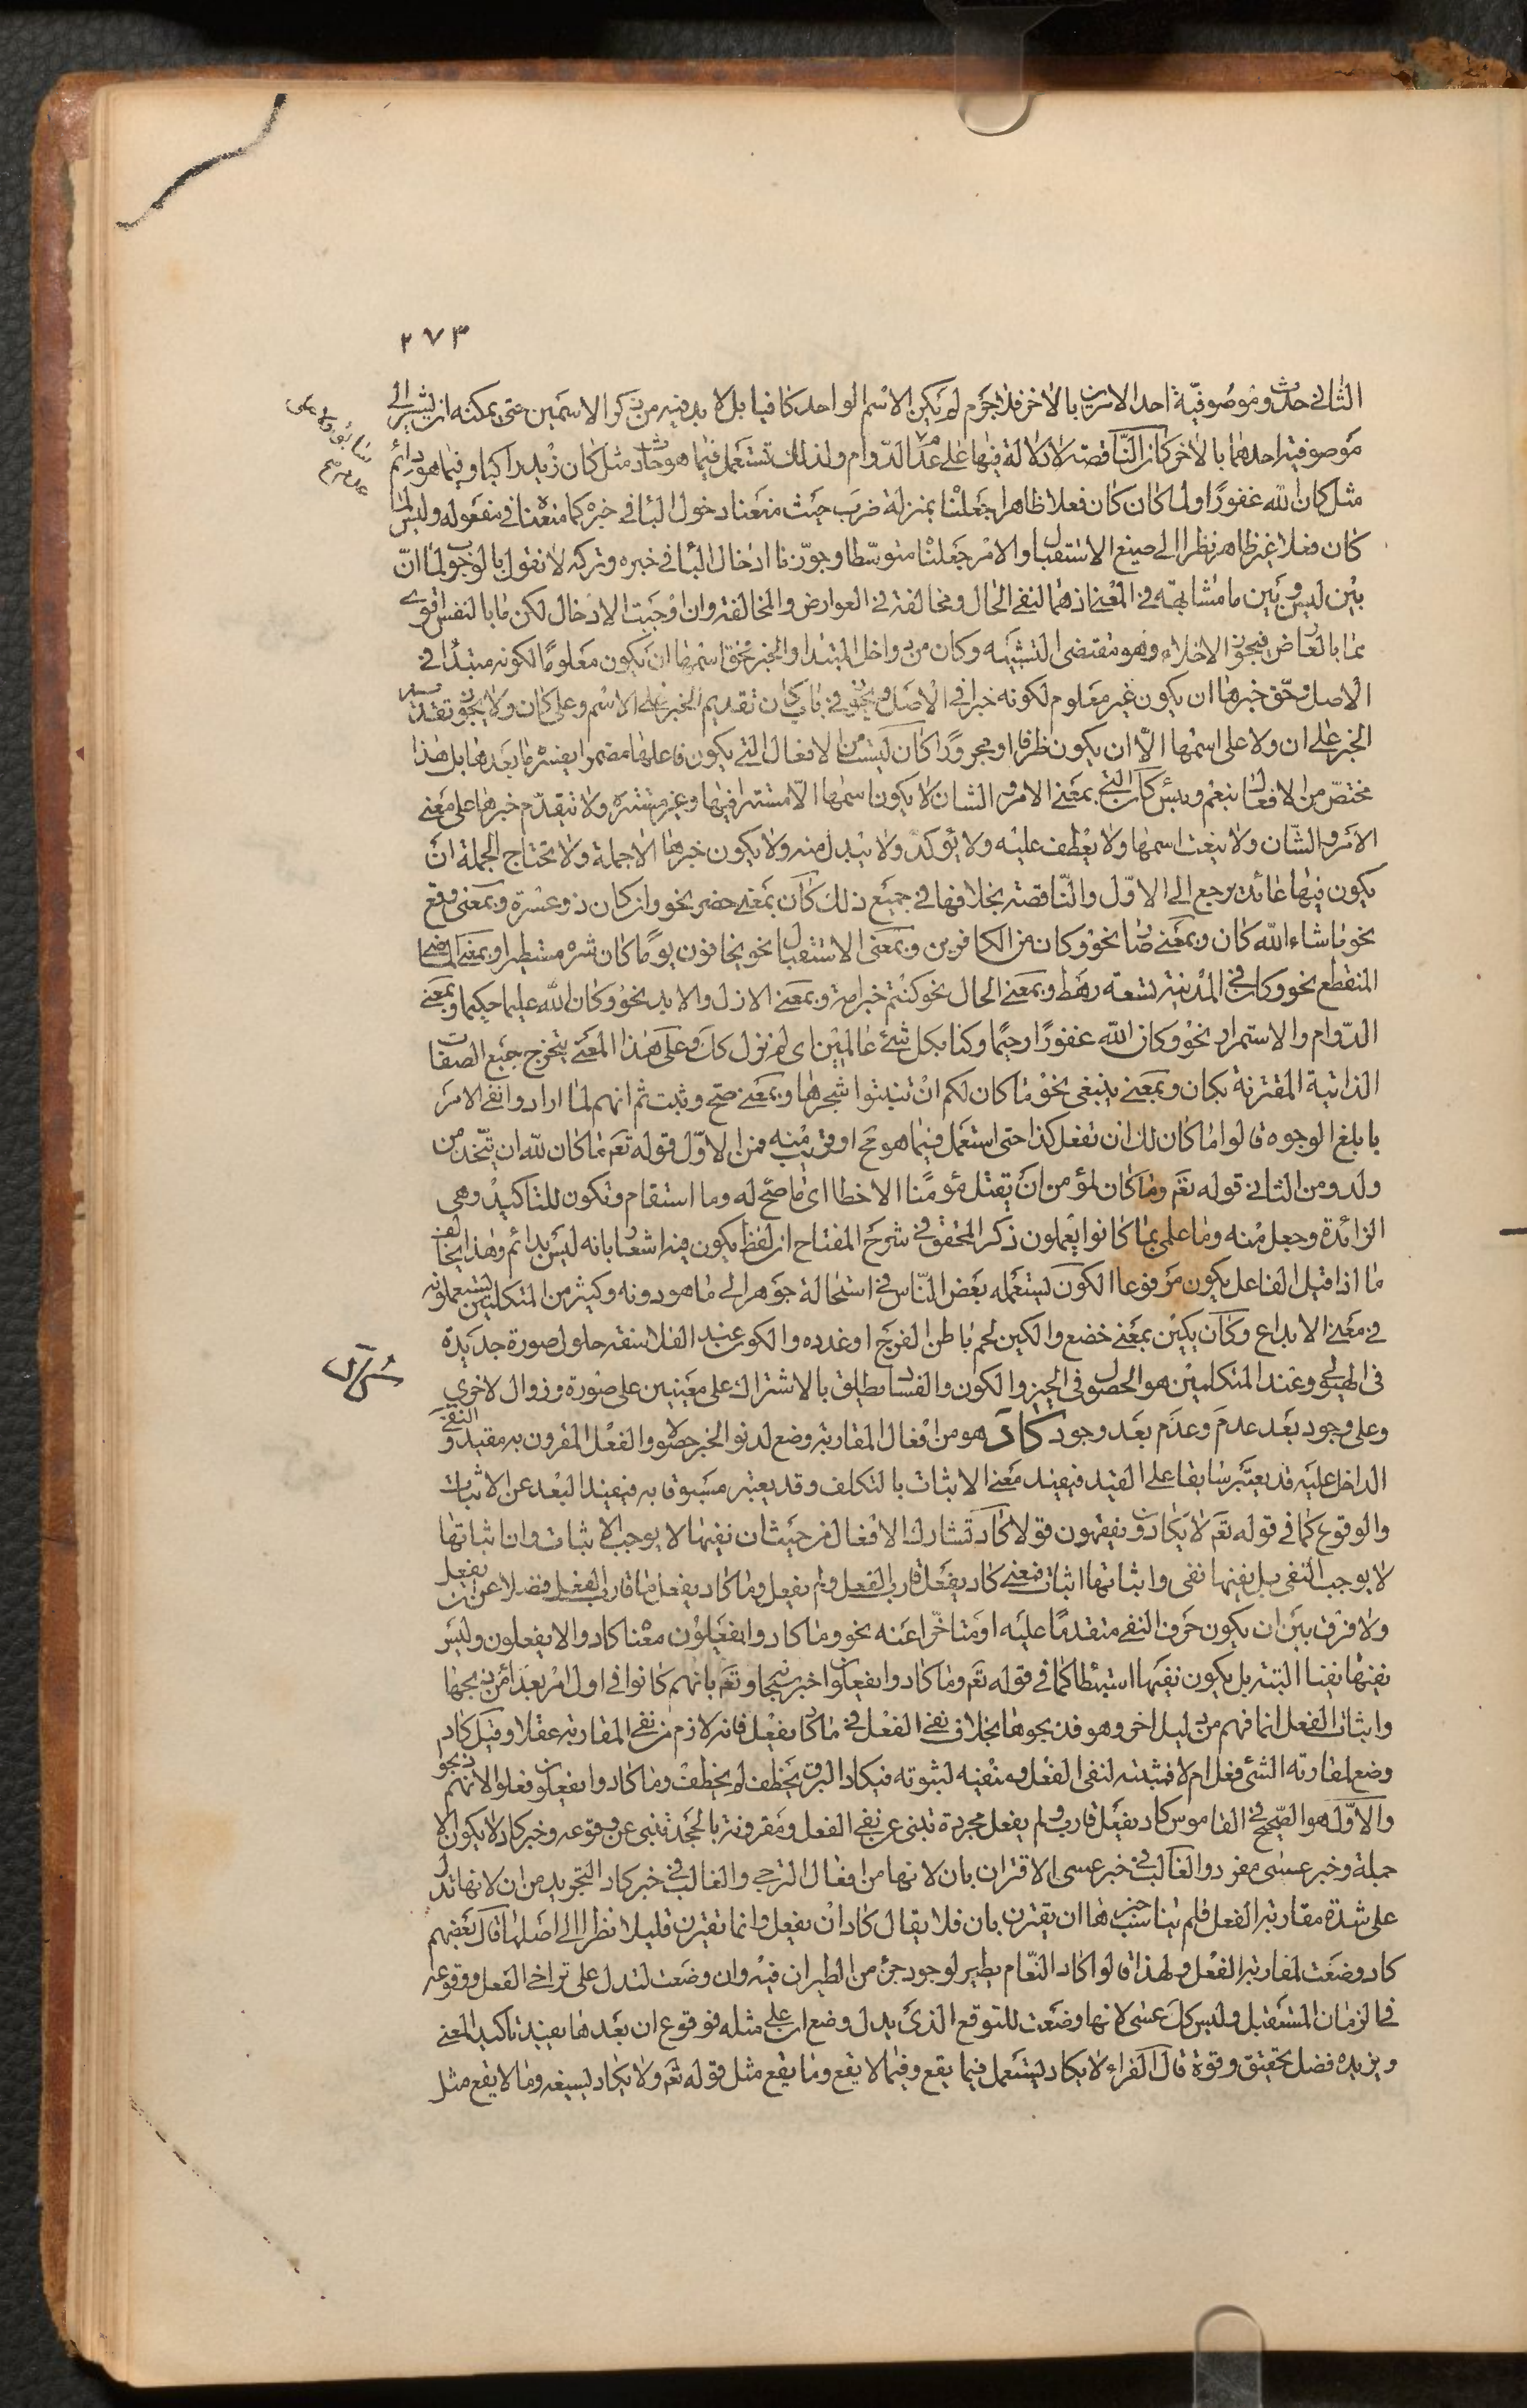 ٢٧٣
الثانى حدث وموصوفية احد الامرين بالاخر فلا جرم لم يكن الاسم الواحد كافيا بل لا بد فيه من ذكر الاسمين حتى يمكنه ان يشير الى
موصوفية احدهما بالاخر كان الناقصة لا دلالة فيها على عدم الدوام ولذلك تستعمل فيما هو حادث مثل كان زيد راكبا وفيما هو دائم
مثل كان الله غفورا ولما كان كان فعلا ظاهرا جعلنا بمنزلة ضرب حيث منعنا دخول البا فى خبره كما منعنا فى مفعوله وليس لما
كان فعلا غير ظاهر نظرا الى صيغ الاستقبال والامر جعلنا متوسطا وجوزنا ادخال البا فى خبره وتركه لا نقول بالوجوب لما ان
بين ليس وبين ما مشابهة فى المعنى اذ هما لنفى الحال ومخالفة فى العوارض والمخالفة وان اوجبت الادخال لكن ما بالنفس اقوى
مما بالعارض فيجوز الاخلاء وهو مقتضى التشبيه وكان من دواخل المبتدا والخبر فحق اسمها ان يكون معلوما لكونه مبتدا فى
الاصل وحق خبرها ان يكون غير معلوم لكونه خبرا فى الاصل ويجوز فى باب كان تقديم الخبر على الاسم وعلى كان ولا يجوز تقديم
الخبر على ان ولا على اسمها الا ان يكون ظرفا او مجرورا كان ليست من الافعال التى يكون فاعلها مضمرا يفسره ما بعدها بل هذا
مختص من الافعال بنعم وبئس كان التى بمعنى الامر والشان لا يكون اسمها الا مستترا فيها وغير مستتره ولا تتقدم خبرها على معنى
الامر والشان ولا ينعت اسمها ولا يعطف عليه ولا يؤكد ولا يبدل منه ولا يكون خبرها الا جملة ولا تحتاج الجملة ان
يكون فيها عائد يرجع الى الاول والناقصة بخلافها فى جميع ذلك كان بمعنى حضر نحو وان كان ذو عسرة وبمعنى وقع
نحو ما شاء الله كان وبمعنى صار نحو وكان من الكافرين وبمعنى الاستقبال نحو يخافون يوما كان شره مستطيرا وبمعنى الماضى
المنقطع نحو وكان فى المدينة تسعة رهط وبمعنى الحال نحو كنتم خير امة وبمعنى الازل والابد نحو وكان الله عليما حكيما وبمعنى
الدوام والاستمرار نحو وكان الله غفورا رحيما وكنا بكل شئ عالمين اى لم نزل كذلك وعلى هذا المعنى يتخرج جميع الصفات
الذاتية المقترنة بكان وبمعنى ينبغى نحو ما كان لكم ان تنبتوا شجرها وبمعنى صح وثبت ثم انهم لما ارادوا نفى الامر
بابلغ الوجوه قالوا ما كان لك ان تفعل كذا حتى استعمل فيما هو مح او قريب منه فمن الاول قوله تعم ما كان لله ان يتخذ من
ولد ومن الثانى قوله تعم وما كان لمؤمن ان يقتل مؤمنا الا خطا اى ما صح له وما استقام وتكون للتاكيد وهى
الزائدة وجعل منه وما علمى بما كانوا يعملون ذكر المحقق فى شرح المفتاح ان لفظ يكون فيه اشعار بانه ليس بدائم وهذا يخالف
ما اذا قيل الفاعل يكون مرفوعا الكون يستعمله بعض الناس فى استحالة جوهر الى ما هو دونه وكثير من المتكلمين يستعملونه
فى معنى الابداع وكان يكين بمعنى خضع والكين لحم باطن الفرج او غدده والكون عند الفلاسفة حلول صورة جديدة
فى الهيولى وعند المتكلمين هو الحصول فى الحيز والكون والفساد يطلق بالاشتراك على معنيين على صورة وزوال لاخرى
وعلى وجود بعد عدم وعدم بعد وجود كاد هو من افعال المقاربة وضع لدنو الخبر حصولا والفعل المقرون به مقيد والنفى
الداخل عليه قد يعتبر سابقا على القيد فيفيد معنى الاثبات بالتكلف وقد يعتبر مسبوقا به فيفيد البعد عن الاثبات
والوقوع كما فى قوله تعم لا يكادون يفقهون قولا كاد تشارك الافعال من حيث ان نفيها لا يوجب الاثبات وان اثباتها
لا يوجب النفى بل نفيها نفى واثباتها اثبات فمعنى كاد يفعل قارب الفعل ولم يفعل وما كاد يفعل ما قارب الفعل فضلا عن ان يفعل
ولا فرق بين ان يكون حرف النفى متقدما عليه او متاخرا عنه نحو وما كادوا يفعلون معناه كادوا لا يفعلون وليس
نفيها نفيا البتة بل يكون نفيها استبطاء كما فى قوله تعم وما كادوا يفعلون اخبر سبحانه وتعم بانهم كانوا فى اول امر بعداء من ذبحها
واثبات الفعل انما فهم من دليل اخر وهو فذبحوها بخلاف نفى الفعل فى ما كاد يفعل فانه لازم من نفى المقاربة عقلا وقيل كاد
وضع لمقاربة الشئ فعل ام لا فمثبته لنفى الفعل ومنفيه لثبوته فيكاد البرق يخطف لم يخطف وما كادوا يفعلون فعلوا لانهم ذبحو
والاول هو الصحيح فى القاموس كاد يفعل قارب ولم يفعل مجردة تنبى عن نفى الفعل ومقرونة بالجحد تنبى عن وقوعه وخبر كاد لا يكون الا
جملة وخبر عسى مفرد والغالب فى خبر عسى الاقتران بان لانها من افعال الترجى والغالب فى خبر كاد التجويد من ان لانها تدل
على شدة مقاربة الفعل فلم يناسب خبرها ان يقترن بان فلا يقال كاد ان يفعل وانما تقترن قليلا نظرا الى اصلها قال بعضهم
كاد وضعت لمقاربة الفعل ولهذا قالوا كاد النعام يطير لوجود جزء من الطيران فيه وان وضعت لتدل على تراخى الفعل ووقوعه
فى الزمان المستقبل وليس كذلك عسى لانها وضعت للتوقع الذى يدل وضع ان على مثله فوقوع ان بعدها يفيد تاكيد المعنى
ويزيده فضل تحقيق وقوة قال الفراء لا يكاد يستعمل فيما يقع وفيما لا يقع وما يقع مثل قوله تعم ولا يكاد يسيغه وما لا يقع مثل